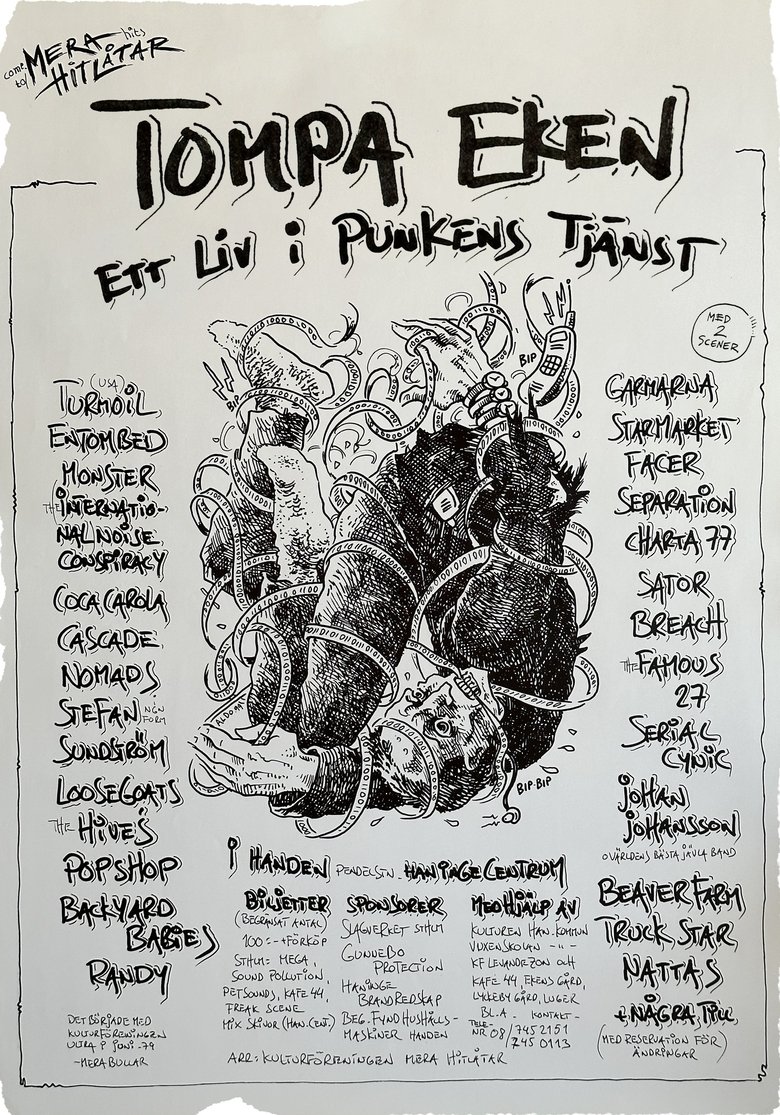 come to/ MERA hits
HITLÅTAR
TOMPA EKEN
ETT LIV i PUNKENS TJÄNST
MED
2
SCENER
BIP
BIP
ALDOMA
BIP-BIP
TURMOIL (USA)
ENTOMBED
MONSTER
THE INTERNATIO-
NAL NOISE
CONSPIRACY
COCA CAROLA
CASCADE
NOMADS
STEFAN NÅN FORM
SUNDSTRÖM
LOOSEGOATS
THE HIVES
POPSHOP
BACKYARD
BABIES
RANDY
DET BÖRJADE MED
KULTURFÖRENINGEN
ULTRA I JUNI -79
~MERA BULLAR
GARMARNA
STARMARKET
FACER
SEPARATION
CHARTA 77
SATOR
BREACH
THE FAMOUS
27
SERIAL
CYNIC
JOHAN
JOHANSSON
O VÄRLDENS BÄSTA JÄVLA BAND
BEAVER FARM
TRUCK STAR
NATTAS
+ NÅGRA TILL
(MED RESERVATION FÖR
ÄNDRINGAR)
I HANDEN PENDELSTN. HANINGE CENTRUM
BILJETTER
(BEGRÄNSAT ANTAL)
100:- +FÖRKÖP
STHLM: MEGA,
SOUND POLLUTION,
PET SOUNDS, KAFE 44,
FREAK SCENE
MIX SKIVOR (HAN.CENT.)
SPONSORER
SLAGVERKET STHLM
GUNNEBO
PROTECTION
HANINGE
BRANDREDSKAP
BEG.FYND HUSHÅLLS-
MASKINER HANDEN
MED HJÄLP AV
KULTUREN HAN.KOMMUN
VUXENSKOLAN -"-
KF LEVANDE ZON OCH
KAFE 44, EKENS GÅRD,
LYCKEBY GÅRD, LUGER
BL.A. - KONTAKT -
TELE-
NR 08/745 2151
745 0113
ARR: KULTURFÖRENINGEN MERA HITLÅTAR